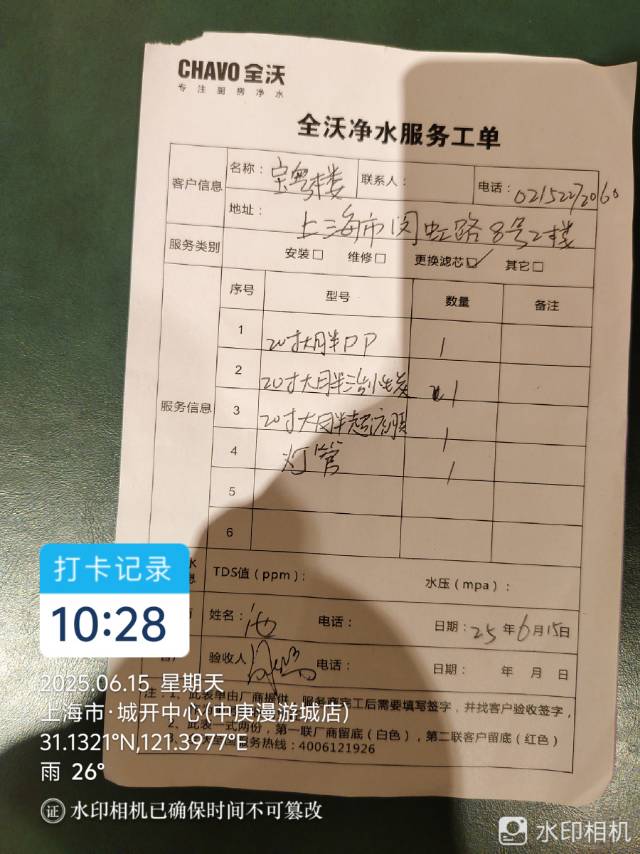 CHAVO 全沃
专注厨房净水
全沃净水服务工单
客户信息 名称：宝粤楼 联系人： 电话：02152272060
地址：上海市闵虹路8号2楼
服务类别 安装□ 维修□ 更换滤芯☑ 其它□
服务信息 序号 型号 数量 备注
1 20寸大胖PP 1
2 20寸大胖 1
3 20寸大胖超滤膜 1
4 灯管 1
5
6
水 息 TDS值（ppm）： 水压（mpa）：
姓名：池 电话： 日期：25年6月15日
验收人 电话： 日期： 年 月 日
注：1、此表单由厂商提供，服务商完工后需要填写签字，并找客户验收签字，
2、此表一式两份，第一联厂商留底（白色），第二联客户留底（红色）
服务热线：4006121926
打卡记录
10:28
2025.06.15 星期天
上海市·城开中心(中庚漫游城店)
31.1321°N,121.3977°E
雨 26°
证 水印相机已确保时间不可篡改
水印相机